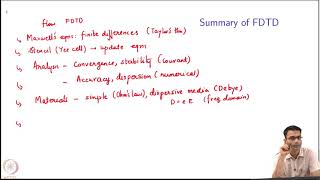 flow FDTD
Summary of FDTD
↳ Maxwell's eqns: finite differences (Taylor's thm)
↳ Stencil (Yee cell) → update eqns
↳ Analysis - Convergence, stability (Courant)
- Accuracy, dispersion (numerical)
↳ Materials - simple (Ohm's law), dispersive media (Debye)
D = ε E (freq domain)
↳